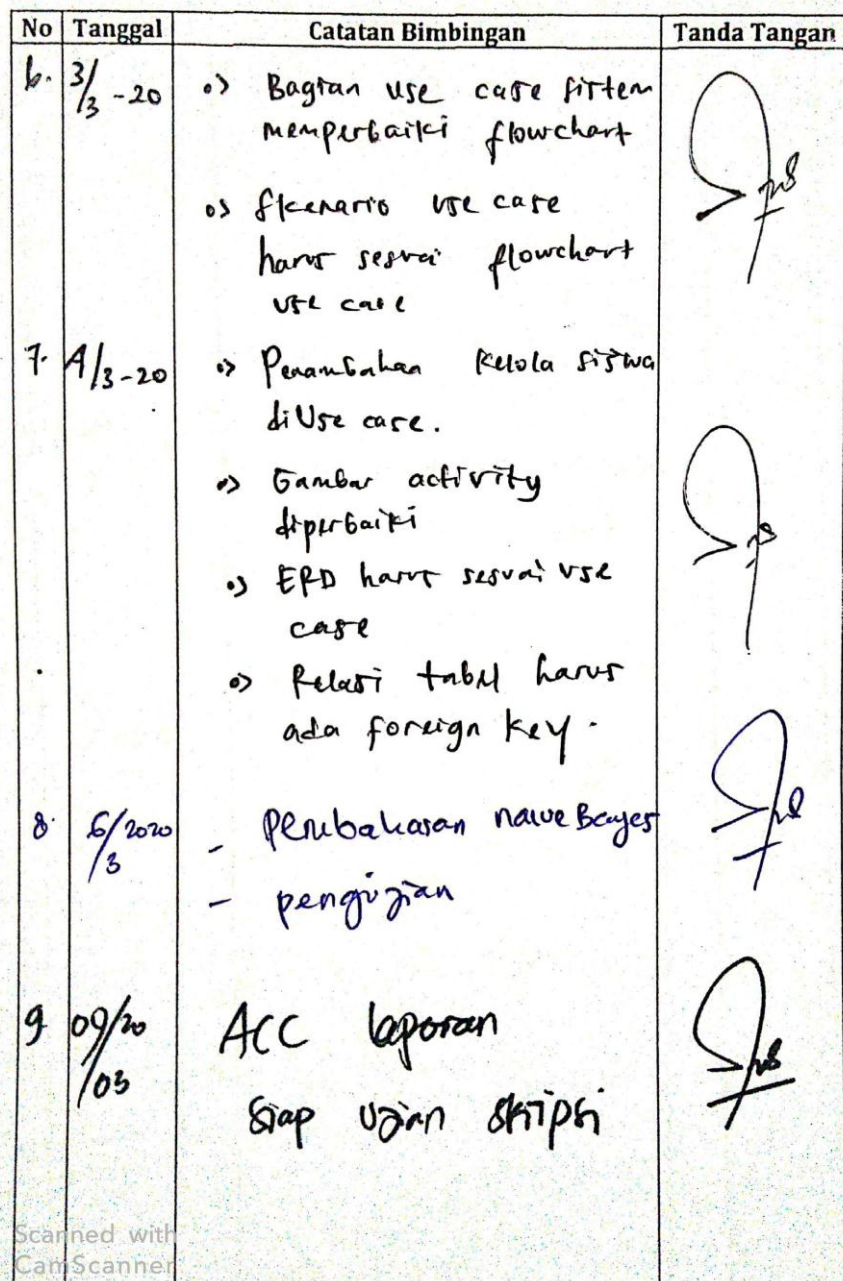 No Tanggal Catatan Bimbingan Tanda Tangan
6. 3/3-20 Bagian use case sistem
memperbaiki flowchart
Skenario use case
harus sesuai flowchart
use case
7. 4/3-20 Penambahan Kelola siswa
di Use case.
Gambar activity
diperbaiki
ERD harus sesuai use
case
Relasi tabel harus
ada foreign key.
8. 6/3 2020 - Pembahasan naive Bayes
- pengujian
9 09/03/20 ACC laporan
siap ujian skripsi
Scanned with
CamScanner